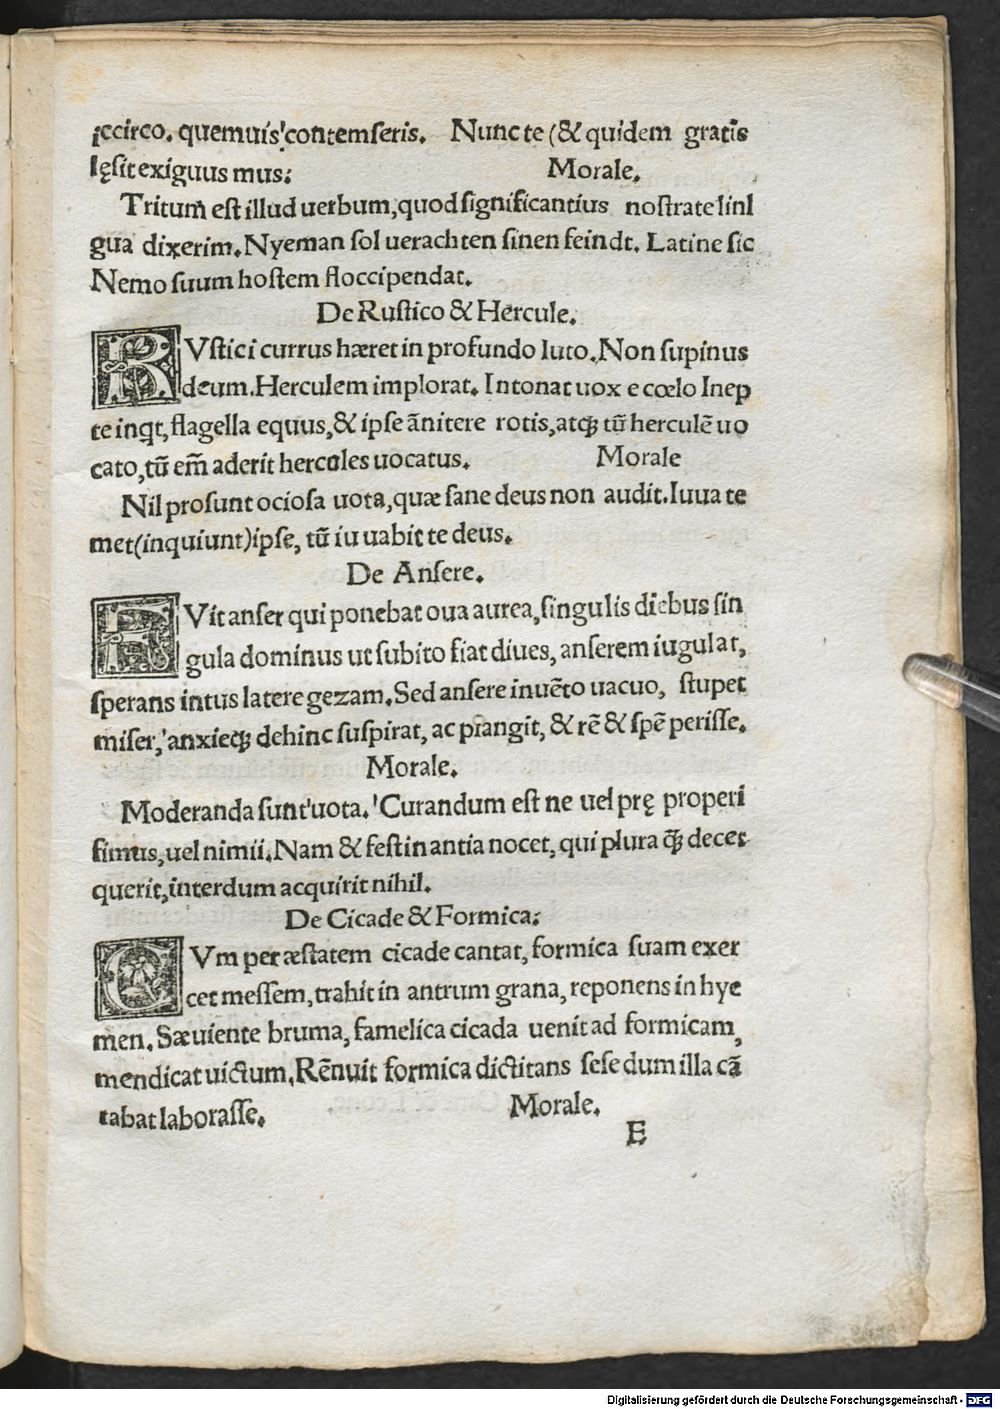 iccirco. quemuis contemseris. Nunc te (& quidem gratis
lęsit exiguus mus: Morale.
Tritum̄ est illud uerbum, quod significantius nostrate linl
gua dixerim. Nyeman sol uerachten sinen feindt. Latine sic
Nemo suum hostem floccipendat.
De Rustico & Hercule.
RVstici currus hæret in profundo luto. Non supinus
deum. Herculem implorat. Intonat uox e cœlo Inep
te inqt, flagella equus, & ipse ānitere rotis, atqꝫ tū herculē uo
cato, tū em̄ aderit hercules uocatus. Morale
Nil prosunt ociosa uota, quæ sane deus non audit. Iuua te
met (inquiunt) ipse, tū iuuabit te deus.
De Ansere.
FVit anser qui ponebat oua aurea, singulis diebus sin
gula dominus ut subito fiat diues, anserem iugulat,
sperans intus latere gezam. Sed ansere inuēto uacuo, stupet
miser, anxieqꝫ dehinc suspirat, ac plangit, & rē & spē perisse.
Morale.
Moderanda sunt uota. Curandum est ne uel prę properi
simus, uel nimii. Nam & festinantia nocet, qui plura q̄ꝫ decet
querit, interdum acquirit nihil.
De Cicade & Formica:
CVm per æstatem cicade cantat, formica suam exer
cet messem, trahit in antrum grana, reponens in hye
men. Sæuiente bruma, famelica cicada uenit ad formicam,
mendicat uictum. Rēnuit formica dictitans sese dum illa cā
tabat laborasse. Morale.
E
Digitalisierung gefördert durch die Deutsche Forschungsgemeinschaft - DFG